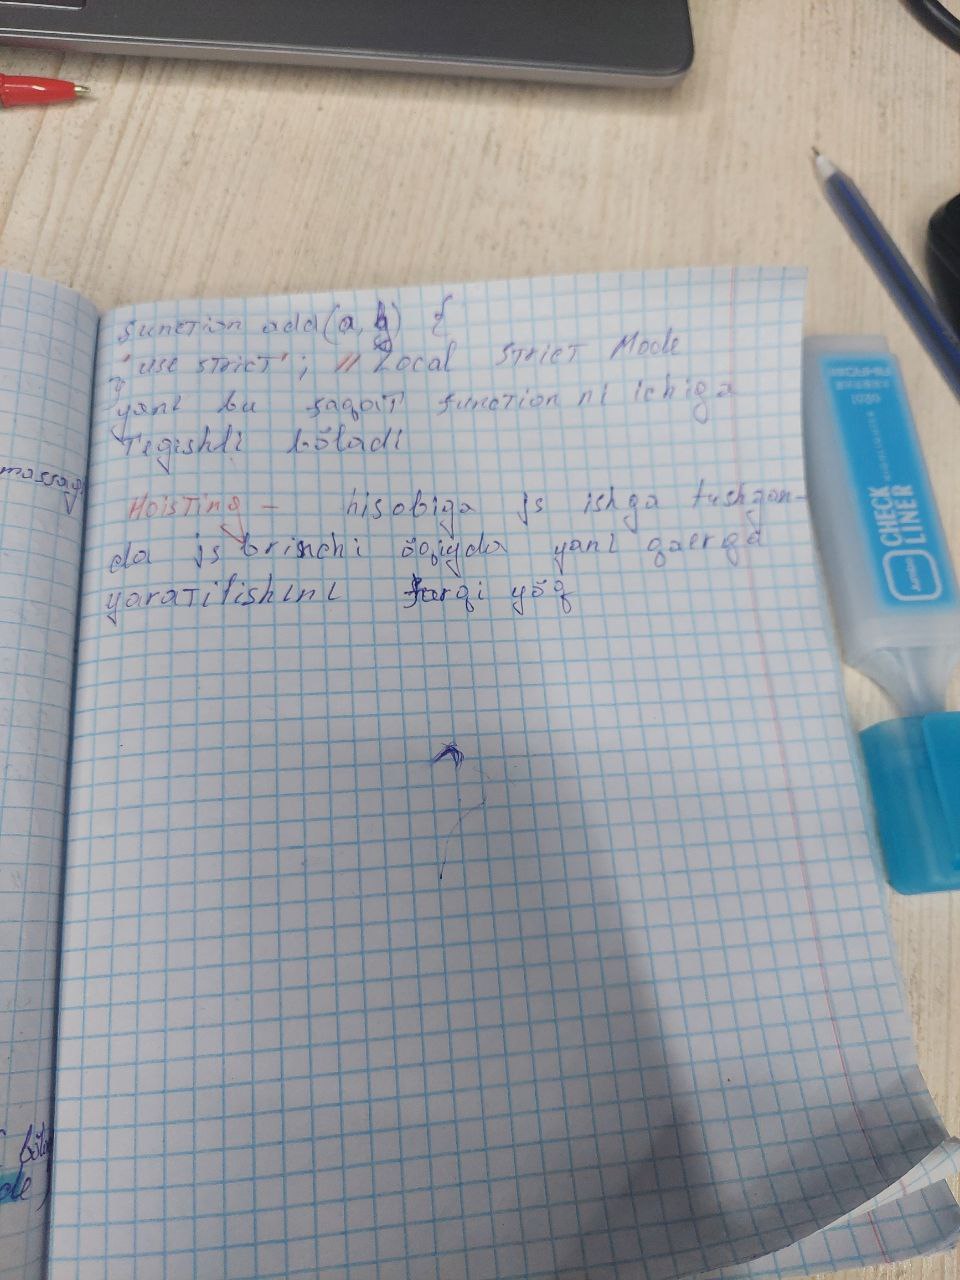 function add(a, b) {
'use strict'; // Local Strict Mode
}
yani bu faqat function ni ichiga
Tegishli bōladi
Hoisting - hisobiga js ishga tushgan-
da js brinchi ōqiydo yani qaerga
yaratilishini farqi yōq
massag
CHECK
LINER